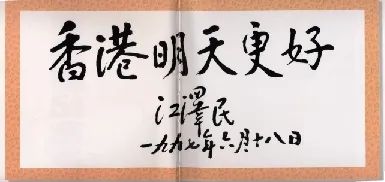 香港明天更好
江澤民
一九九七年六月十八日